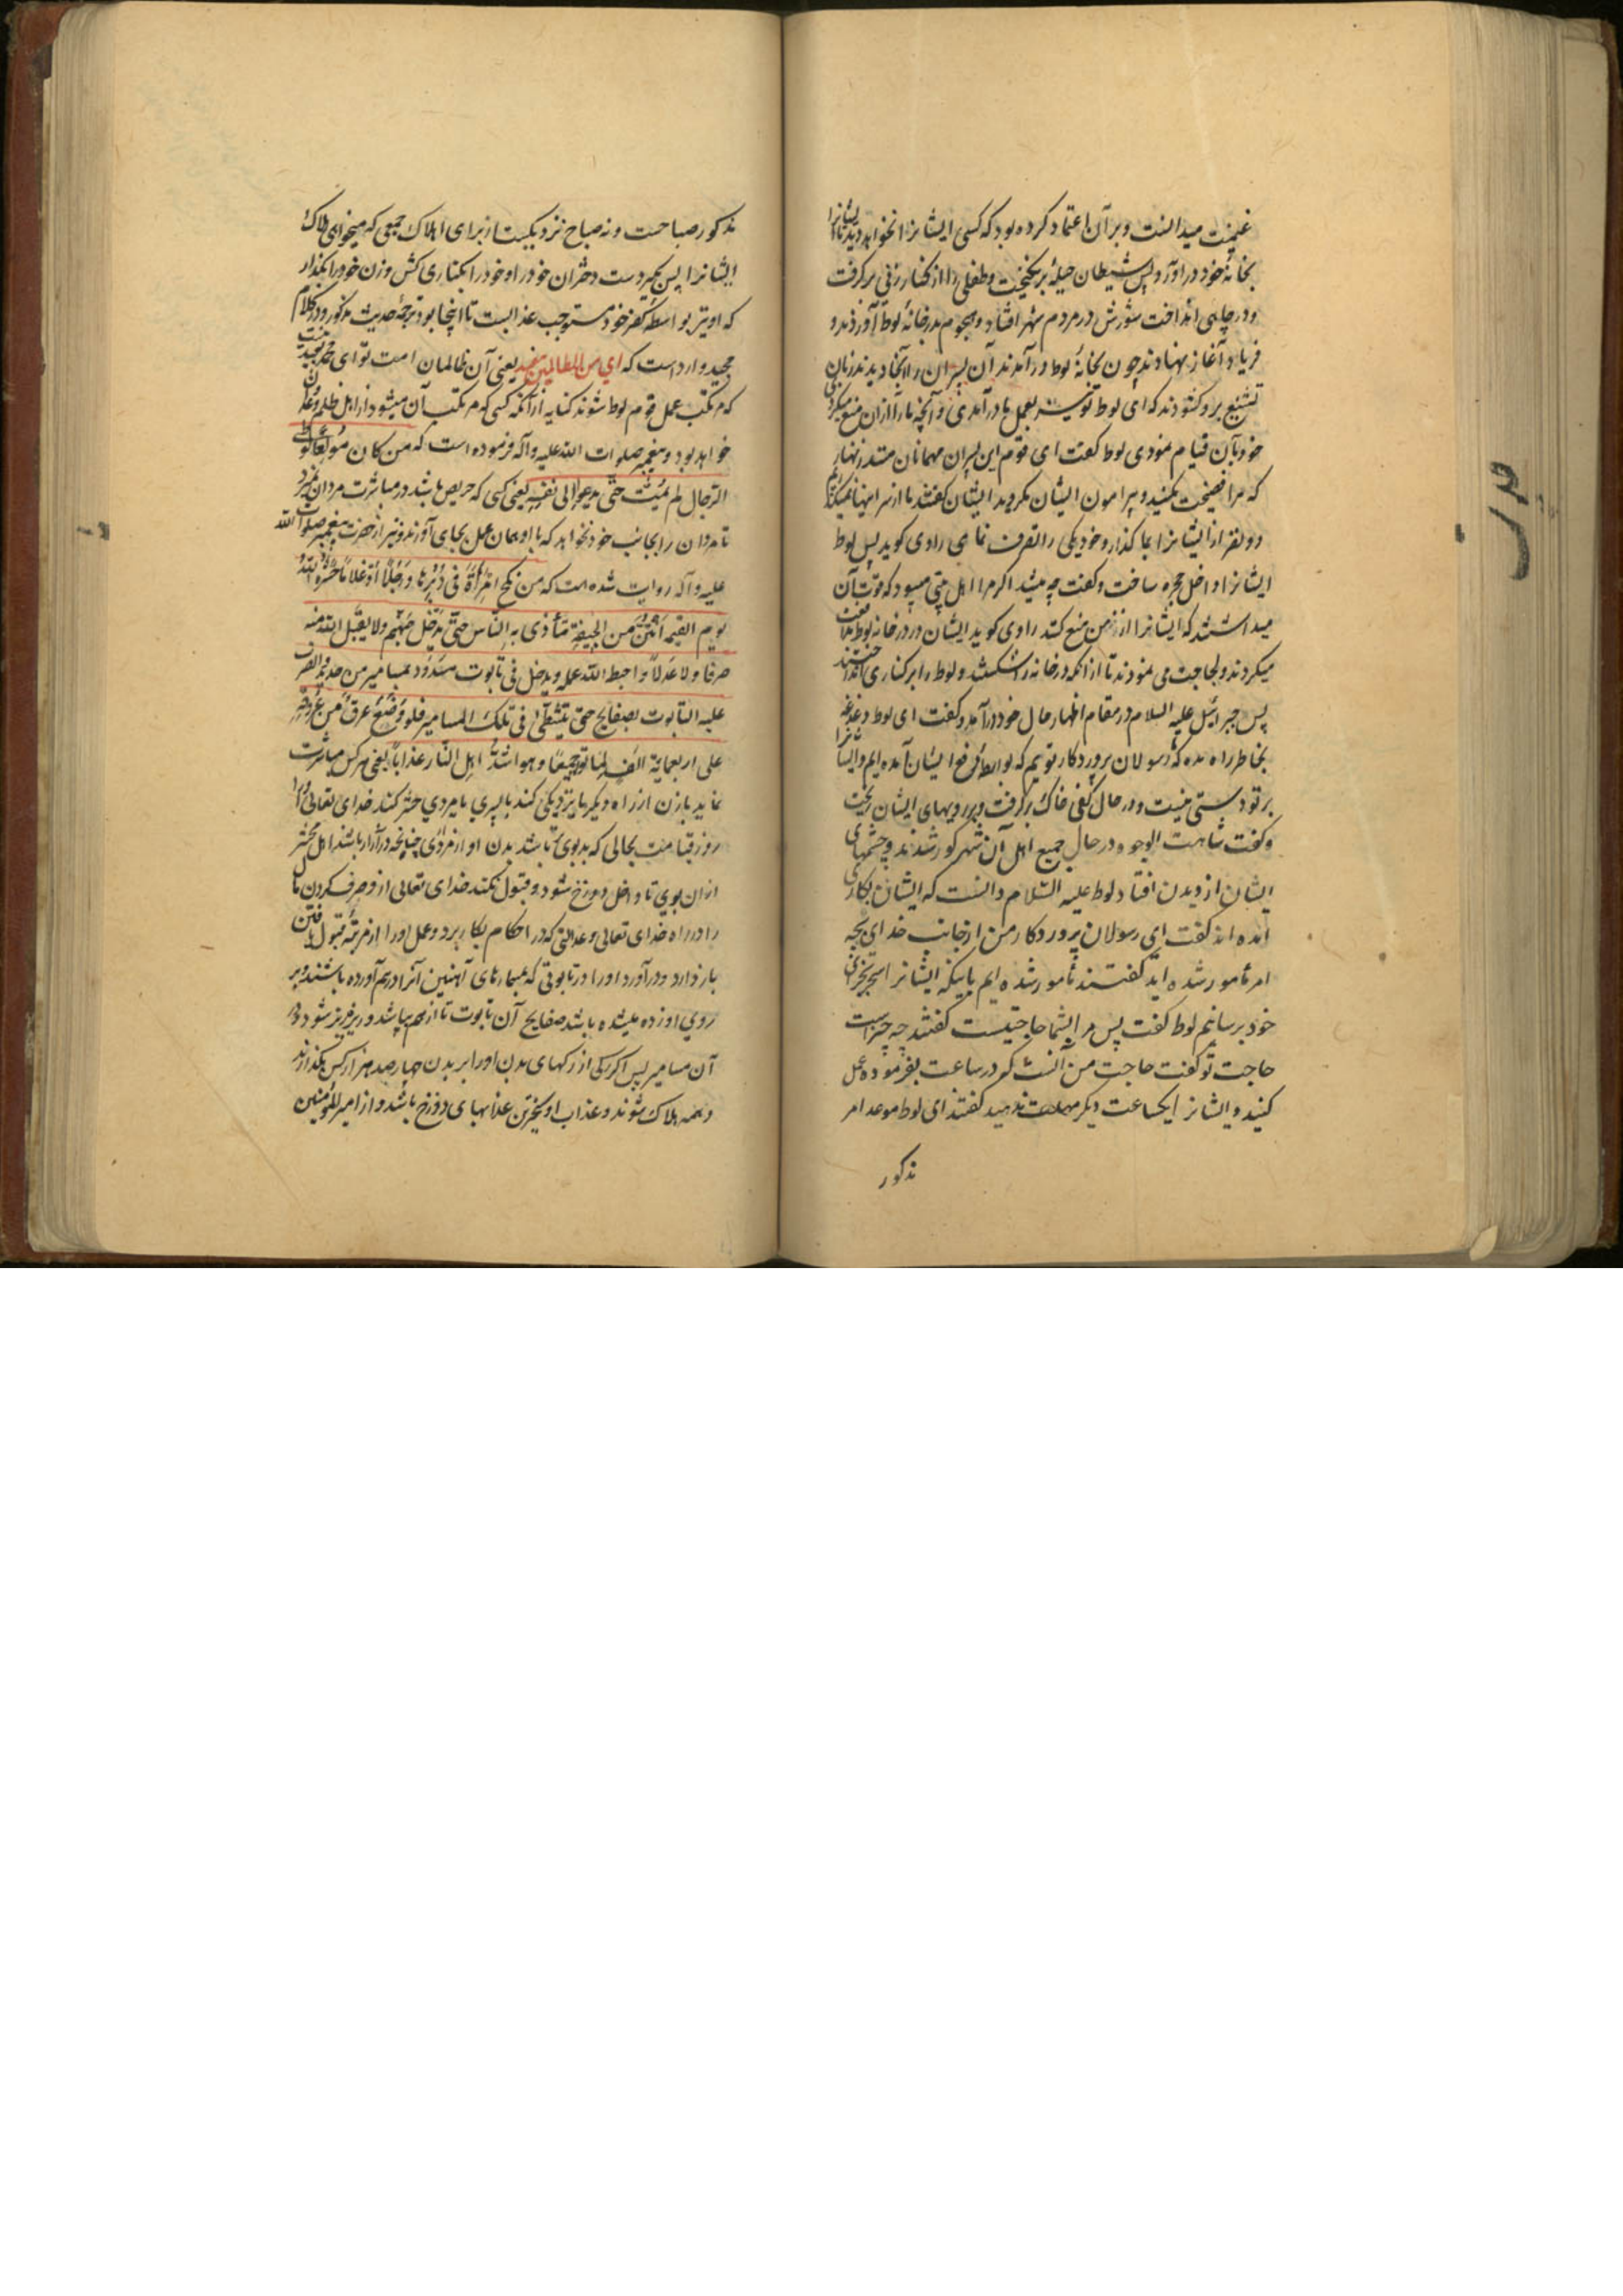 غنیمت میدانست و بر آن اعتماد کرده بود که کسی ایشانرا نخواهد دید تا ایشانرا
بخانهٔ خود در آورد پس شیطان حیلهٔ برانگیخت و طفلی را از کنار زنی برگرفت
و در چاهی انداخت شورش در مردم شهر افتاد و هجوم بدر خانهٔ لوط آوردند و
فریاد آغاز نهادند چون بخانهٔ لوط در آمدند آن پسران را آنجا دیدند زبان
تشنیع برو گشودند که ای لوط تو نیز بعمل ما در آمدی و آنچه ما را از ان منع میکردی
خود بآن قیام نمودی لوط گفت ای قوم این پسران مهمانان منند زنهار
که مرا فضیحت مکنید و پیرامون ایشان مگردید ایشان گفتند ما از سر اینها نمیگذریم
دو نفر از ایشانرا بما گذار و خود یکی را تصرف نمای راوی گوید پس لوط
ایشانرا داخل حجره ساخت و گفت چه میشد اگر مرا اهل بیتی میبود که قوت آن
میداشتند که ایشانرا از من منع کنند راوی گوید ایشان در در خانه لوط مدافعت
میکردند و لجاجت می نمودند تا از آنکه در خانه را شکستند و لوط را بر کناری انداختند
پس جبرائیل علیه السلام در مقام اظهار حال خود در آمد و گفت ای لوط دغدغه
بخاطر راه مده که رسولان پروردگار توییم که بواسطهٔ رفع ایشان آمده ایم و ایشانرا
بر تو دستی نیست و در حال کفی خاک برگرفت و بر رویهای ایشان ریخت
و گفت شاهت الوجوه در حال جمیع اهل آن شهر کور شدند و چشمهای
ایشان از دیدن افتاد لوط علیه السلام دانست که ایشان بکاری
آمده اند گفت ای رسولان پروردگار من از جانب خدای بچه
امر مأمور شده اید گفتند مأمور شده ایم باینکه ایشانرا بسحر بجزای
خود برسانیم لوط گفت پس مرا بشما حاجتیست گفتند چه چیز است
حاجت تو گفت حاجت من آنست که در ساعت بفرموده عمل
کنید و ایشانرا یکساعت دیگر مهلت ندهید گفتند ای لوط موعد امر
مذکور
مذکور صباحست و نه صباح نزدیکیست از برای اهلاک جمعی که میخواهی هلاک
ایشانرا پس بگیر دست دختران خود را و خود را بکناری کش و زن خود را بگذار
که او نیز بواسطهٔ کفر خود مستوجب عذابست تا اینجا بود ترجمهٔ حدیث مذکور و در کلام
مجید وارد است که ای من الظالمین ببعید یعنی آن ظالمان امت تو ای محمد بعید نیست
که مرتکب عمل قوم لوط شوند کنایه از آنکه کسی که مرتکب آن میشود از اهل ظلم و عدوان
خواهد بود و پیغمبر صلوات الله علیه و آله فرموده است که من کان مولعا بوطی
الرجال لم یمت حتی یدعوا الی نفسه یعنی کسی که حریص باشد در مباشرت مردان نمیرد
تا مردان را بجانب خود نخواهد که با او همان عمل بجای آورند و نیز از حضرت پیغمبر صلوات الله
علیه و آله روایت شده است که من نکح امرأة فی دبرها و رجلا او غلاما حشره الله
یوم القیمه انتن من الجیفة یتأذی به الناس حتی یدخل جهنم و لا یقبل الله منه
صرفا و لا عدلا و احبط الله عمله و یدخل فی تابوت مسدود بمسامیر من حدید و یضرب
علیه التابوت بصفایح حتی یتشظی فی تلک المسامیر فلو وضع عرق من عروقه
علی اربعمایة الف لماتوا جمیعا و هو اشد اهل النار عذابا یعنی هر کس مباشرت
نماید با زن از راه دیگر یا نزدیکی کند با پسری یا مردی حشر کند خدای تعالی او را
روز قیامت بحالی که بدبوی باشد بدن او از مرداری چنانچه در آزار باشند اهل محشر
از ان بوی تا داخل دوزخ شود و قبول نکند خدای تعالی از و صرف کردن مال
را در راه خدای تعالی و عدالتی که در احکام بکار برد و عمل او را از مرتبهٔ قبول یافتن
باز دارد و در آورد او را در تابوتی که بمسمارهای آهنین آنرا درهم آورده باشند و بر
روی او زده میشده باشد صفایح آن تابوت تا از هم بپاشد و ریز ریز شود در
آن مسامیر پس اگر رگی از رگهای بدن او را بر بدن چهارصد هزار کس بگذارند
همه هلاک شوند و عذاب او سخت‌ترین عذابهای دوزخ باشد و از امیر المؤمنین